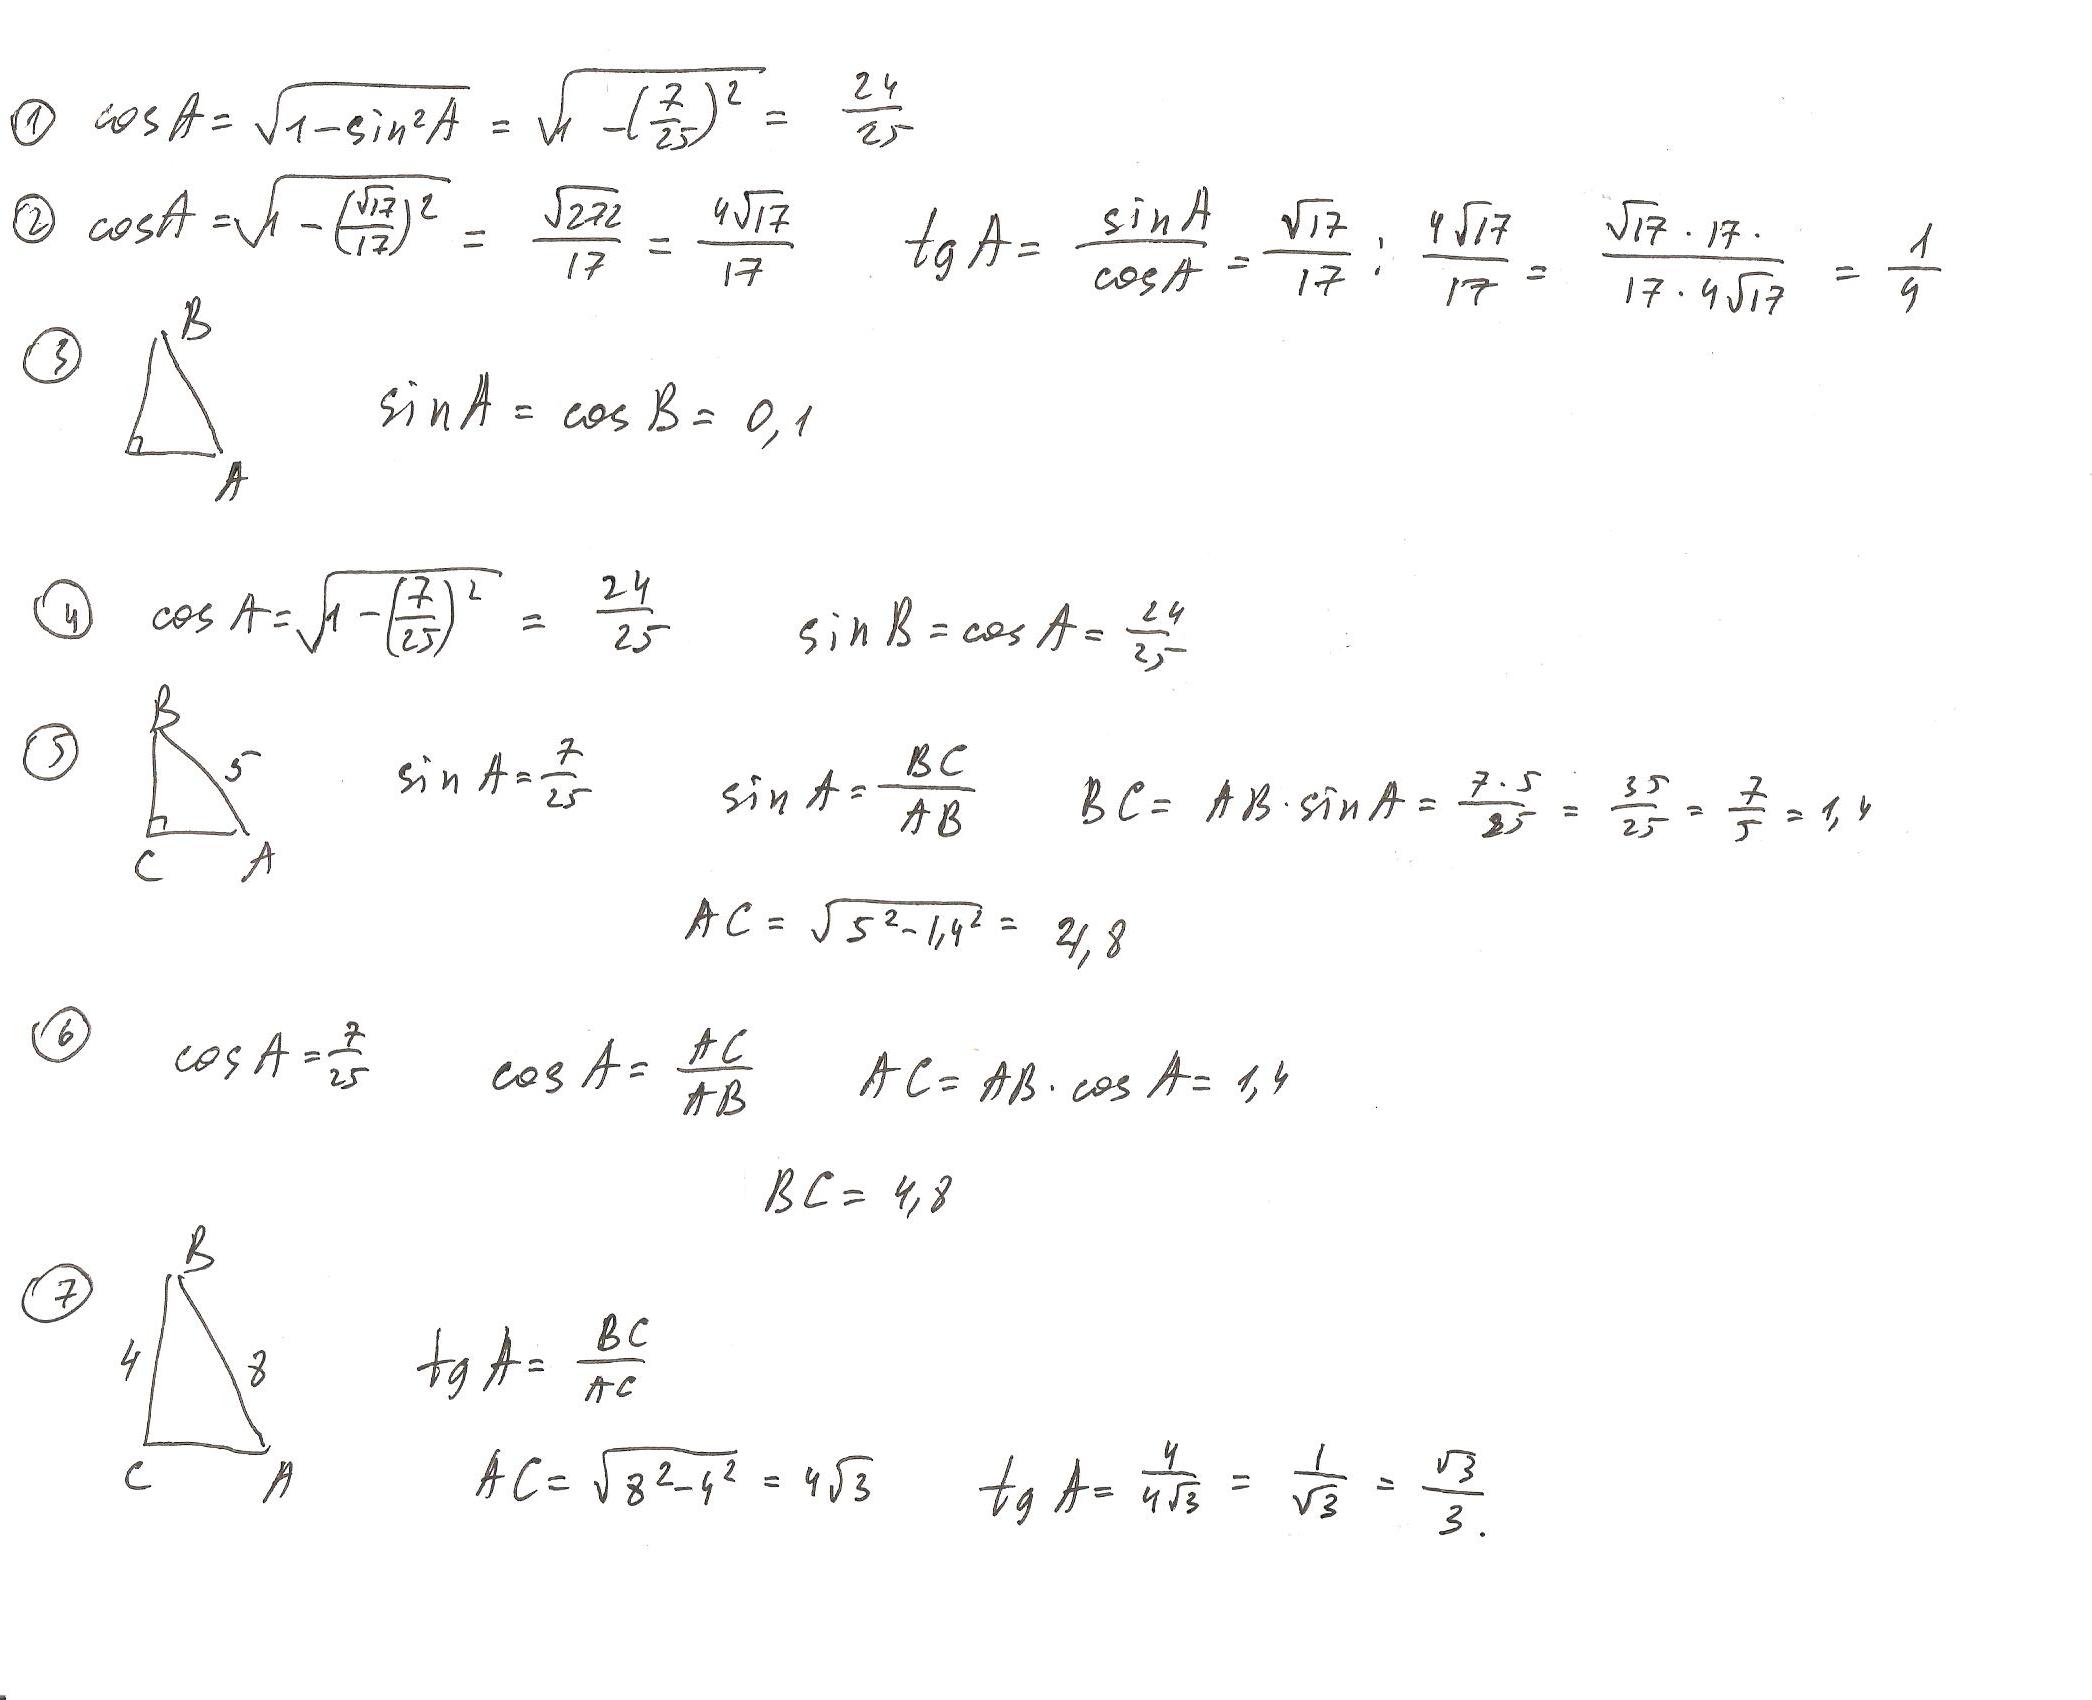 ① cos A = √(1−sin²A) = √(1−(7/25)²) = 24/25
② cos A = √(1−(√17/17)²) = √272/17 = 4√17/17 tg A = sin A/cos A = √17/17 : 4√17/17 = √17·17·/17·4√17 = 1/4
③ B
sin A = cos B = 0,1
A
④ cos A = √(1−(7/25)²) = 24/25 sin B = cos A = 24/25
B
⑤ 5 sin A = 7/25 sin A = BC/AB BC = AB·sin A = 7·5/25 = 35/25 = 7/5 = 1,4
C A
AC = √(5²−1,4²) = 4,8
⑥ cos A = 7/25 cos A = AC/AB AC = AB·cos A = 1,4
BC = 4,8
B
⑦
4 8 tg A = BC/AC
C A AC = √(8²−4²) = 4√3 tg A = 4/4√3 = 1/√3 = √3/3.